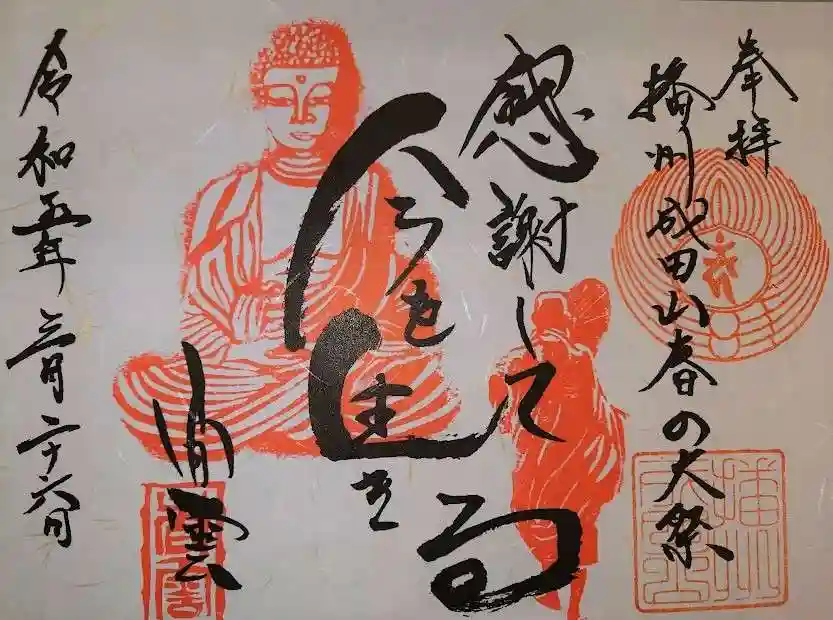 奉拝
播州成田山春の大祭
感謝して
今を生きる
雲
令和五年三月二十六日